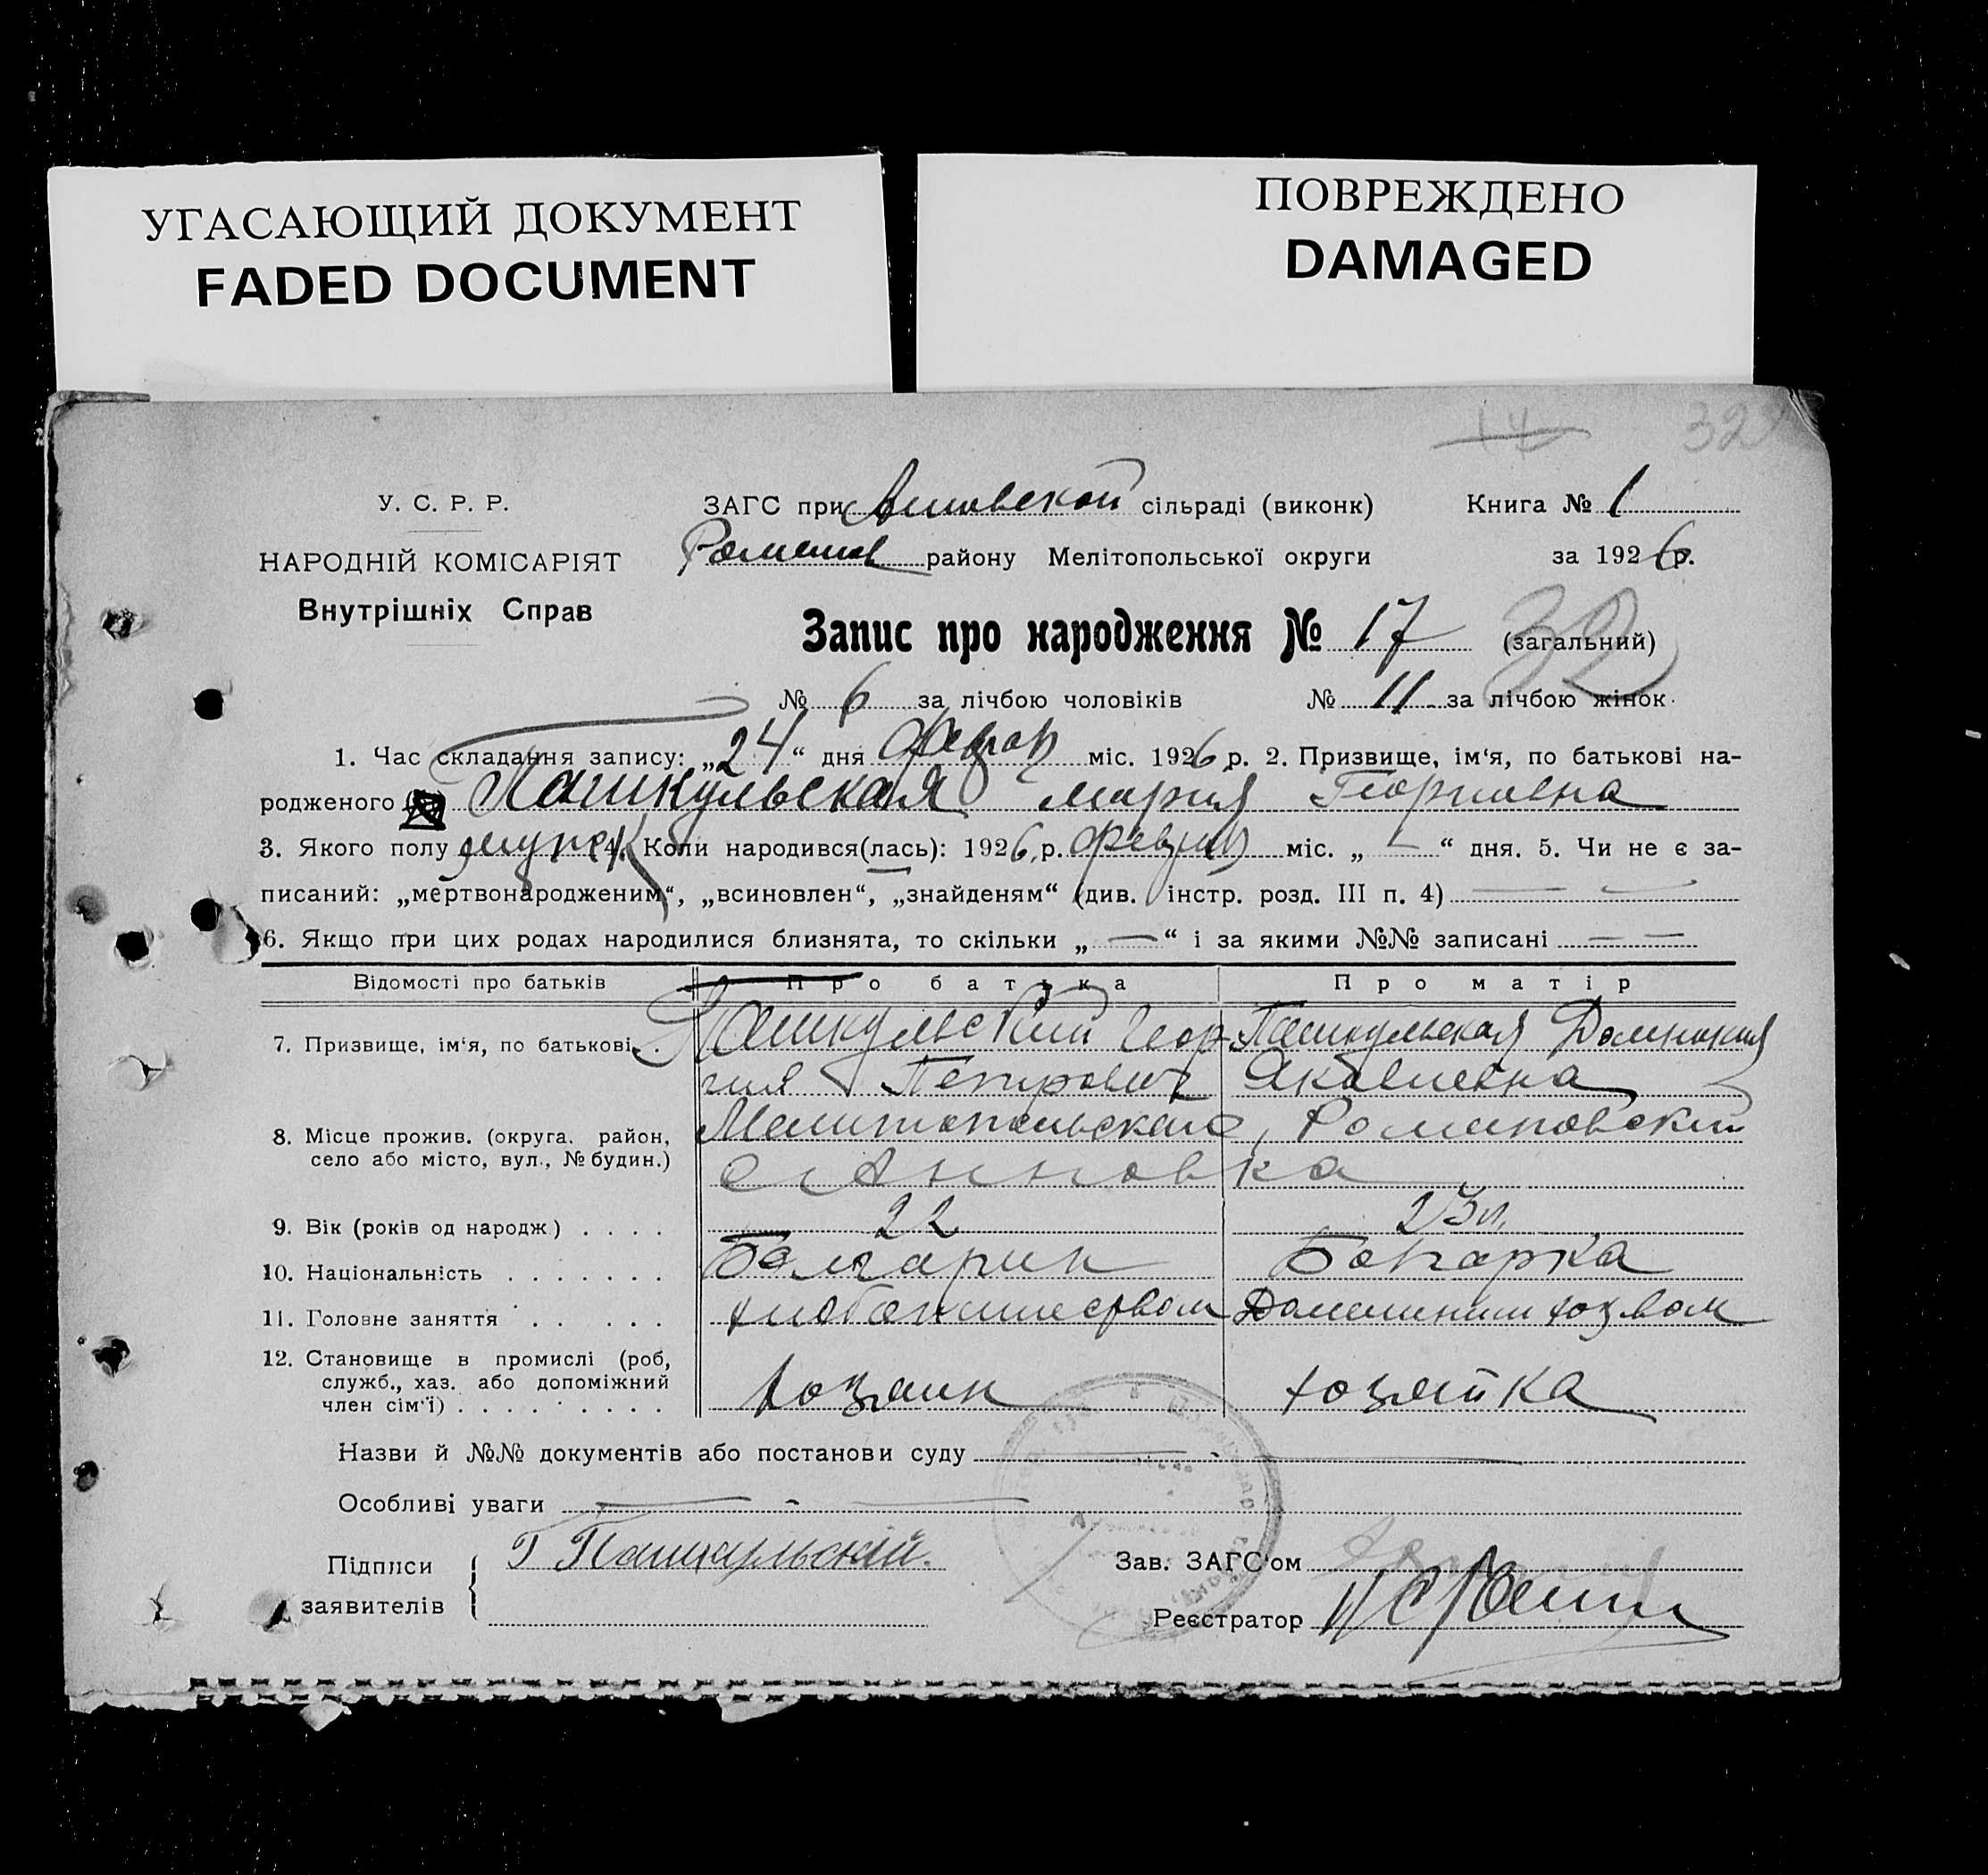 УГАСАЮЩИЙ ДОКУМЕНТ
FADED DOCUMENT
ПОВРЕЖДЕНО
DAMAGED
14 322
У. С. Р. Р.
НАРОДНІЙ КОМІСАРІЯТ
Внутрішніх Справ
ЗАГС при Анновской сільраді (виконк) Книга № 1
Роменов району Мелітопольської округи за 1926 р.
Запис про народження № 17 (загальний)
32
№ 6 за лічбою чоловіків № 11 за лічбою жінок
1. Час складання запису: „24“ дня феврал міс. 1926 р. 2. Призвище, ім‘я, по батькові на-
родженого Пашкульская Мария Георгиевна
3. Якого полу 4. Коли народився(лась): 1926 р. міс. „ “ дня. 5. Чи не є за-
писаний: „мертвонародженим“, „всиновлен“, „знайденям“ (див. інстр. розд. III п. 4)
6. Якщо при цих родах народилися близнята, то скільки „ — “ і за якими №№ записані — —
Відомості про батьків Про батька Про матір
7. Призвище, ім‘я, по батькові . Пашкульский Геор- Пашкульская Домникия
гия Петрович Яковлевна
8. Місце прожив. (округа, район, Мелитопольская, Романовский
село або місто, вул., № будин.) с Анновка
9. Вік (років од народж) . . . . 22 23 л.
10. Національність . . . . . . . Болгарин Богарка
11. Головне заняття . . . . . хлебопашеством Домашним хозвом
12. Становище в промислі (роб, хозяин хозяйка
служб., хаз. або допоміжний
член сім‘ї) . . . . . . . . .
Назви й №№ документів або постанови суду
Особливі уваги
Підписи Г Пашкульский.
заявителів
Зав. ЗАГС‘ом
Реєстратор